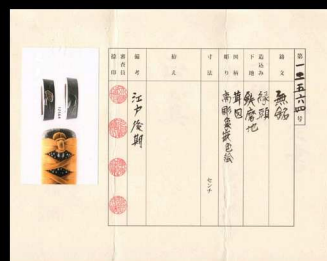 第一二五六四号
銘文 無銘
造込み 縁頭
下地 鉄磨地
図柄 茸図
彫り 高彫象嵌色絵
寸法 センチ
拵え
備考 江戸後期
審査員